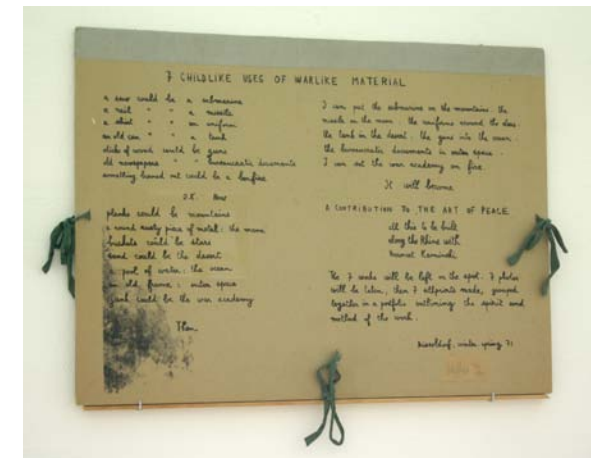 7 CHILDLIKE USES OF WARLIKE MATERIAL
a saw could be a submarine
a nail " " a missile
a shirt " " an uniform
an old can " " a tank
sticks of wood could be guns
old newspapers " " bureaucratic documents
something burned out could be a bonfire
O.K. Now
planks could be mountains
a round rusty piece of metal : the moon
buckets could be stars
sand could be the desert
a pool of water : the ocean
an old frame : outer space
junk could be the war academy
Then,
I can put the submarine on the mountains. the
missile on the moon. the uniforms around the stars.
the tank in the desert. the guns into the ocean.
the bureaucratic documents in outer space.
I can set the war academy on fire.
It will become
A CONTRIBUTION TO THE ART OF PEACE
All this to be built
along the Rhine with
Kaminski
The 7 works will be left on the spot. 7 photos
will be taken, then 7 offprints made, grouped
together in a portfolio outlining the spirit and
method of the work.
Düsseldorf, winter spring 71